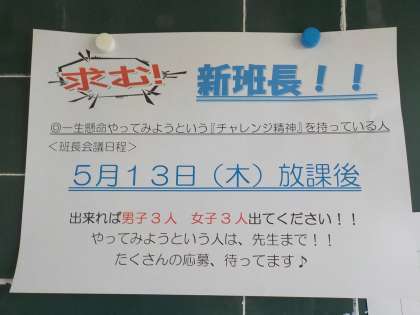 求む! 新班長！！
◎一生懸命やってみようという『チャレンジ精神』を持っている人
＜班長会議日程＞
５月１３日（木）放課後
出来れば男子３人　女子３人出てください！！
やってみようという人は、先生まで！！
たくさんの応募、待ってます♪